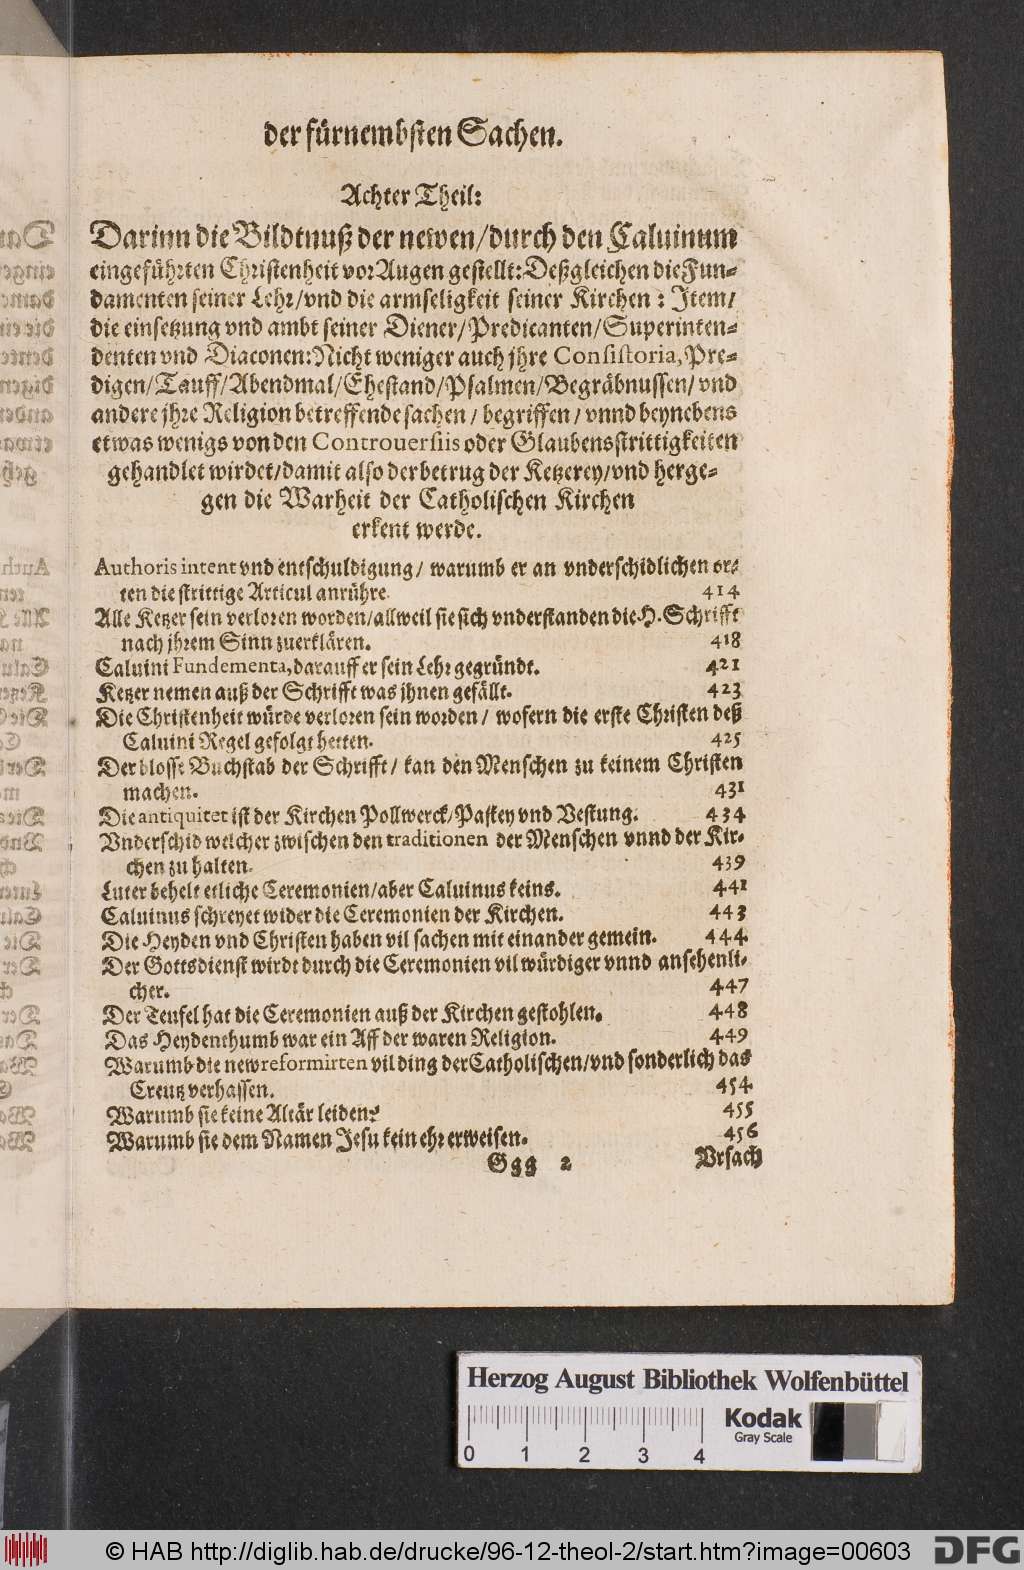 der fürnembsten Sachen.
Achter Theil:
Darinn die Bildtnuß der newen/durch den Caluinum
eingeführten Christenheit vor Augen gestellt: Deßgleichen die Fun-
damenten seiner Lehr/vnd die armseligkeit seiner Kirchen: Item/
die einsetzung vnd ambt seiner Diener/Predicanten/Superinten-
denten vnd Diaconen: Nicht weniger auch jhre Consistoria, Pre-
digen/Tauff/Abendmal/Ehestand/Psalmen/Begräbnussen/vnd
andere jhre Religion betreffende sachen/begriffen/vnnd beynebens
etwas wenigs von den Controuersiis oder Glaubensstrittigkeiten
gehandlet wirdet/damit also der betrug der Ketzerey/vnd herge-
gen die Warheit der Catholischen Kirchen
erkent werde.
Authoris intent vnd entschuldigung/ warumb er an vnderschidlichen or-
ten die strittige Articul anrühre. 414
Alle Ketzer sein verloren worden/allweil sie sich vnderstanden die H. Schrifft
nach jhrem Sinn zuerklären. 418
Caluini Fundementa, darauff er sein Lehr gegründt. 421
Ketzer nemen auß der Schrifft was jhnen gefällt. 423
Die Christenheit würde verloren sein worden/ wofern die erste Christen deß
Caluini Regel gefolgt hetten. 425
Der blosse Buchstab der Schrifft/ kan den Menschen zu keinem Christen
machen. 431
Die antiquitet ist der Kirchen Pollwerck/Pastey vnd Vestung. 434
Vnderschid welcher zwischen den traditionen der Menschen vnnd der Kir-
chen zu halten. 439
Luter behelt etliche Ceremonien/aber Caluinus keins. 441
Caluinus schreyet wider die Ceremonien der Kirchen. 443
Die Heyden vnd Christen haben vil sachen mit einander gemein. 444
Der Gottsdienst wirdt durch die Ceremonien vil würdiger vnnd ansehenli-
cher. 447
Der Teufel hat die Ceremonien auß der Kirchen gestohlen. 448
Das Heydenthumb war ein Aff der waren Religion. 449
Warumb die new reformirten vil ding der Catholischen/vnd sonderlich das
Creutz verhassen. 454
Warumb sie keine Altär leiden? 455
Warumb sie dem Namen Jesu kein ehr erweisen. 456
Ggg 2 Vrsach
Herzog August Bibliothek Wolfenbüttel
0 1 2 3 4
Kodak
Gray Scale
© HAB http://diglib.hab.de/drucke/96-12-theol-2/start.htm?image=00603
DFG